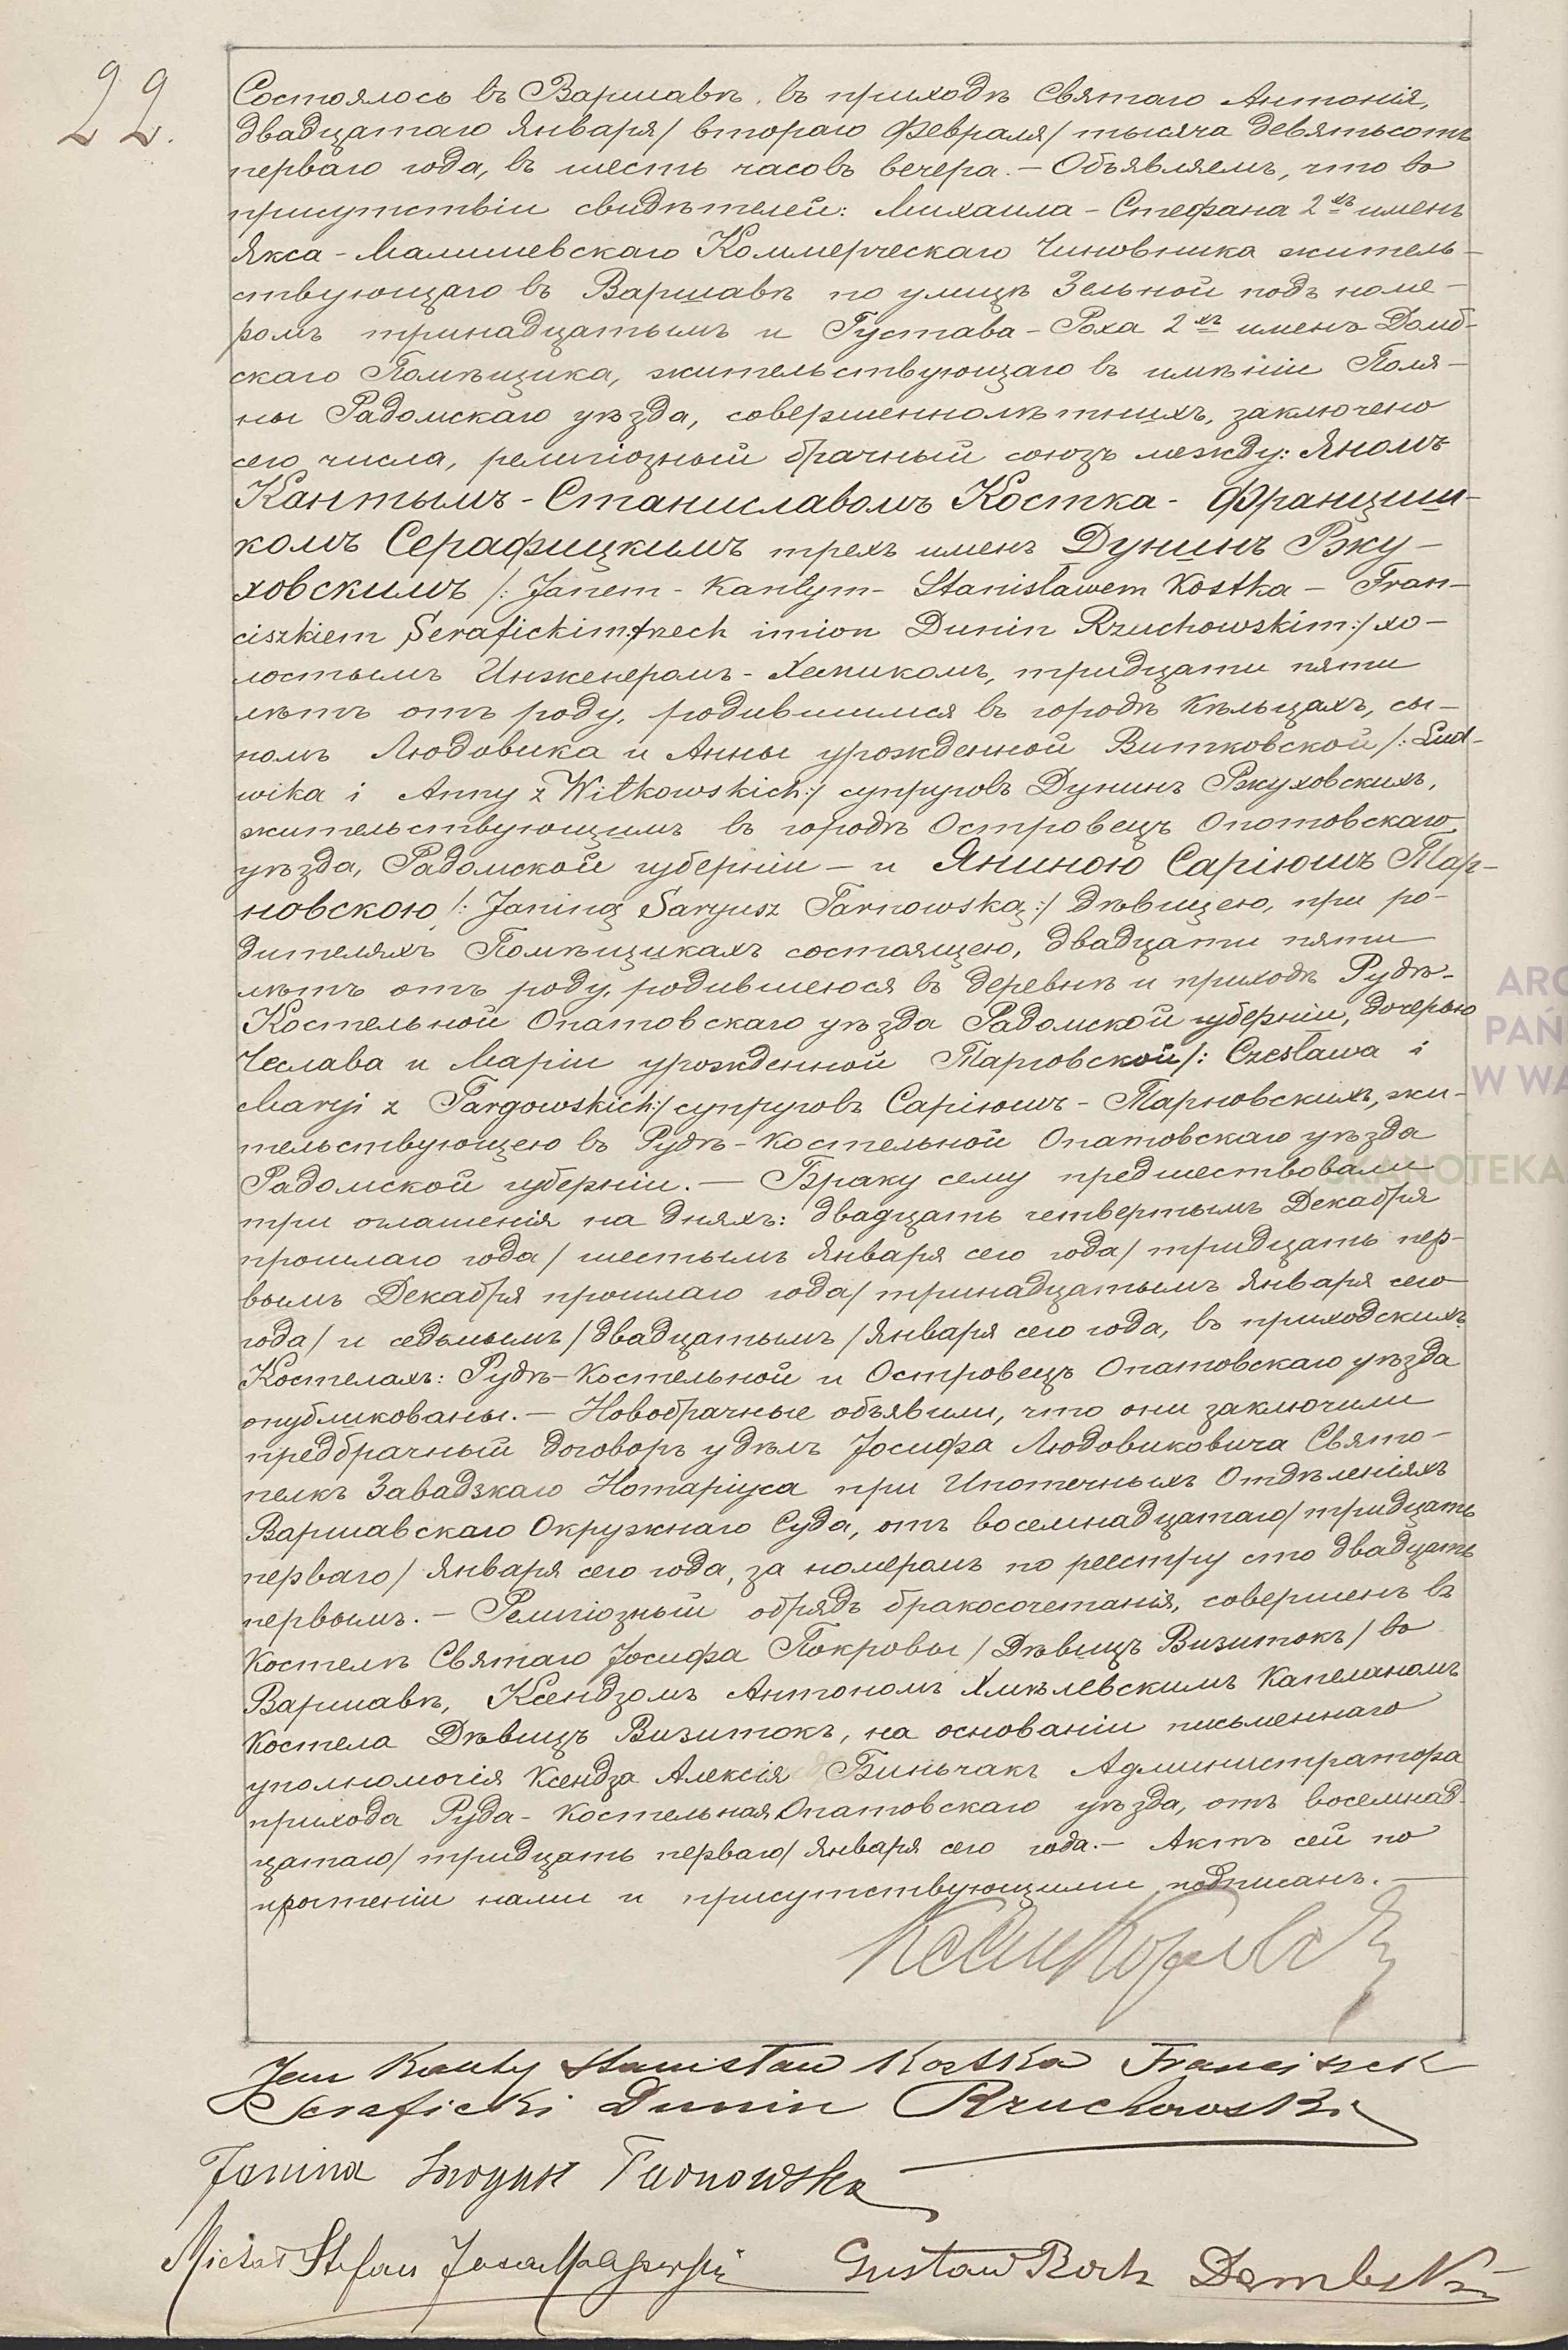 22.
Состоялось въ Варшавѣ, въ приходѣ Святаго Антонія,
двадцатаго Января/ втораго Февраля/ тысяча девятьсотъ
перваго года, въ шесть часовъ вечера. – Объявляемъ, что въ
присутствіи свидѣтелей: Михаила – Стефана 2хъ именъ
Якса – Малишевскаго Коммерческаго Чиновника житель–
ствующаго въ Варшавѣ по улицѣ Зельной подъ номе–
ромъ тринадцатымъ и Густава – Роха 2хъ именъ Домб–
скаго Помѣщика, жительствующаго въ имѣніи Поля–
ны Радомскаго уѣзда, совершеннолѣтнихъ, заключено
сего числа, религіозный брачный союзъ между: Яномъ
Кантымъ – Станиславомъ Костка – Францишкомъ
комъ Серафицкимъ трехъ именъ Дунинъ Ржу–
ховскимъ /: Janem – Kantym – Stanisławem Kostka – Fran–
ciszkiem Serafickim trzech imion Dunin Rzuchowskim :/ хо–
лостымъ Инженеромъ – Химикомъ, тридцати пяти
лѣтъ отъ роду, родившимся въ городѣ Кѣльцахъ, сы–
номъ Людовика и Анны урожденной Витковской /: Lud–
wika i Anny z Witkowskich :/ супруговъ Дунинъ Ржуховскихъ,
жительствующимъ въ городѣ Островецъ Опатовскаго
уѣзда, Радомской губерніи – и Яниною Саріюшъ Тар–
новскою /: Janiną Saryusz Tarnowską :/ дѣвицею, при ро–
дителяхъ Помѣщикахъ состоящею, двадцати пяти
лѣтъ отъ роду, родившеюся въ деревнѣ и приходѣ Рудѣ–
Костельной Опатовскаго уѣзда Радомской губерніи, дочерью
Чеслава и Маріи урожденной Тарговской /: Czesława i
Maryi z Targowskich :/ супруговъ Саріюшъ – Тарновскихъ, жи–
тельствующею въ Рудѣ – Костельной Опатовскаго уѣзда
Радомской губерніи. – Браку сему предшествовали
три оглашенія на дняхъ: двадцать четвертымъ Декабря
прошлаго года/ шестымъ Января сего года/ тридцать пер–
вымъ Декабря прошлаго года/ тринадцатымъ Января сего
года/ и седьмымъ/ двадцатымъ/ Января сего года, въ приходскихъ
Костелахъ: Рудѣ – Костельной и Островецъ Опатовскаго уѣзда
опубликованы. – Новобрачные объявили, что они заключили
предбрачный договоръ у дѣлъ Іосифа Людовиковича Свято–
пелкъ Завадзкаго Нотаріуса при Ипотечныхъ Отдѣленіяхъ
Варшавскаго Окружнаго Суда, отъ восемнадцатаго/ тридцать
перваго/ Января сего года, за номеромъ по реестру сто двадцать
первымъ. – Религіозный обрядъ бракосочетанія, совершенъ въ
Костелѣ Святаго Іосифа Покровы / Дѣвицъ Визитокъ/ въ
Варшавѣ, Ксендзомъ Антономъ Хмѣлевскимъ Капеланомъ
Костела Дѣвицъ Визитокъ, на основаніи письменнаго
уполномочія Ксендза Алексія Биньчакъ Администратора
прихода Руда – Костельная Опатовскаго уѣзда, отъ восемнад–
цатаго/ тридцать перваго/ Января сего года. – Актъ сей по
прочтеніи нами и присутствующими подписанъ. –
Jan Kanty Stanisław Kostka Franciszek
Seraficki Dunin Rzuchowski
Janina Saryusz Tarnowska
Michał Stefan Jaxa Małyszewski Gustaw Roch Dembski
SKANOTEKA